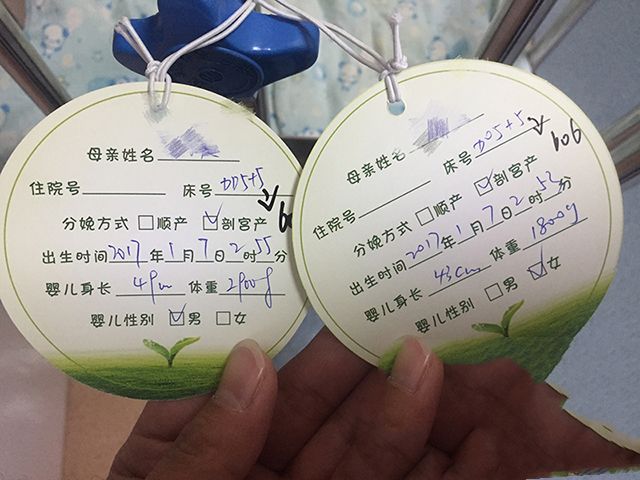 母亲姓名
住院号 床号 DD5+5
606
分娩方式 □顺产 ☑剖宫产
出生时间 2017 年 1 月 7 日 2 时 55 分
婴儿身长 49cm 体重 2900g
婴儿性别 ☑男 □女
母亲姓名
住院号 床号 DD5+5
606
分娩方式 □顺产 ☑剖宫产
出生时间 2017 年 1 月 7 日 2 时 52 分
婴儿身长 43cm 体重 1800g
婴儿性别 □男 ☑女